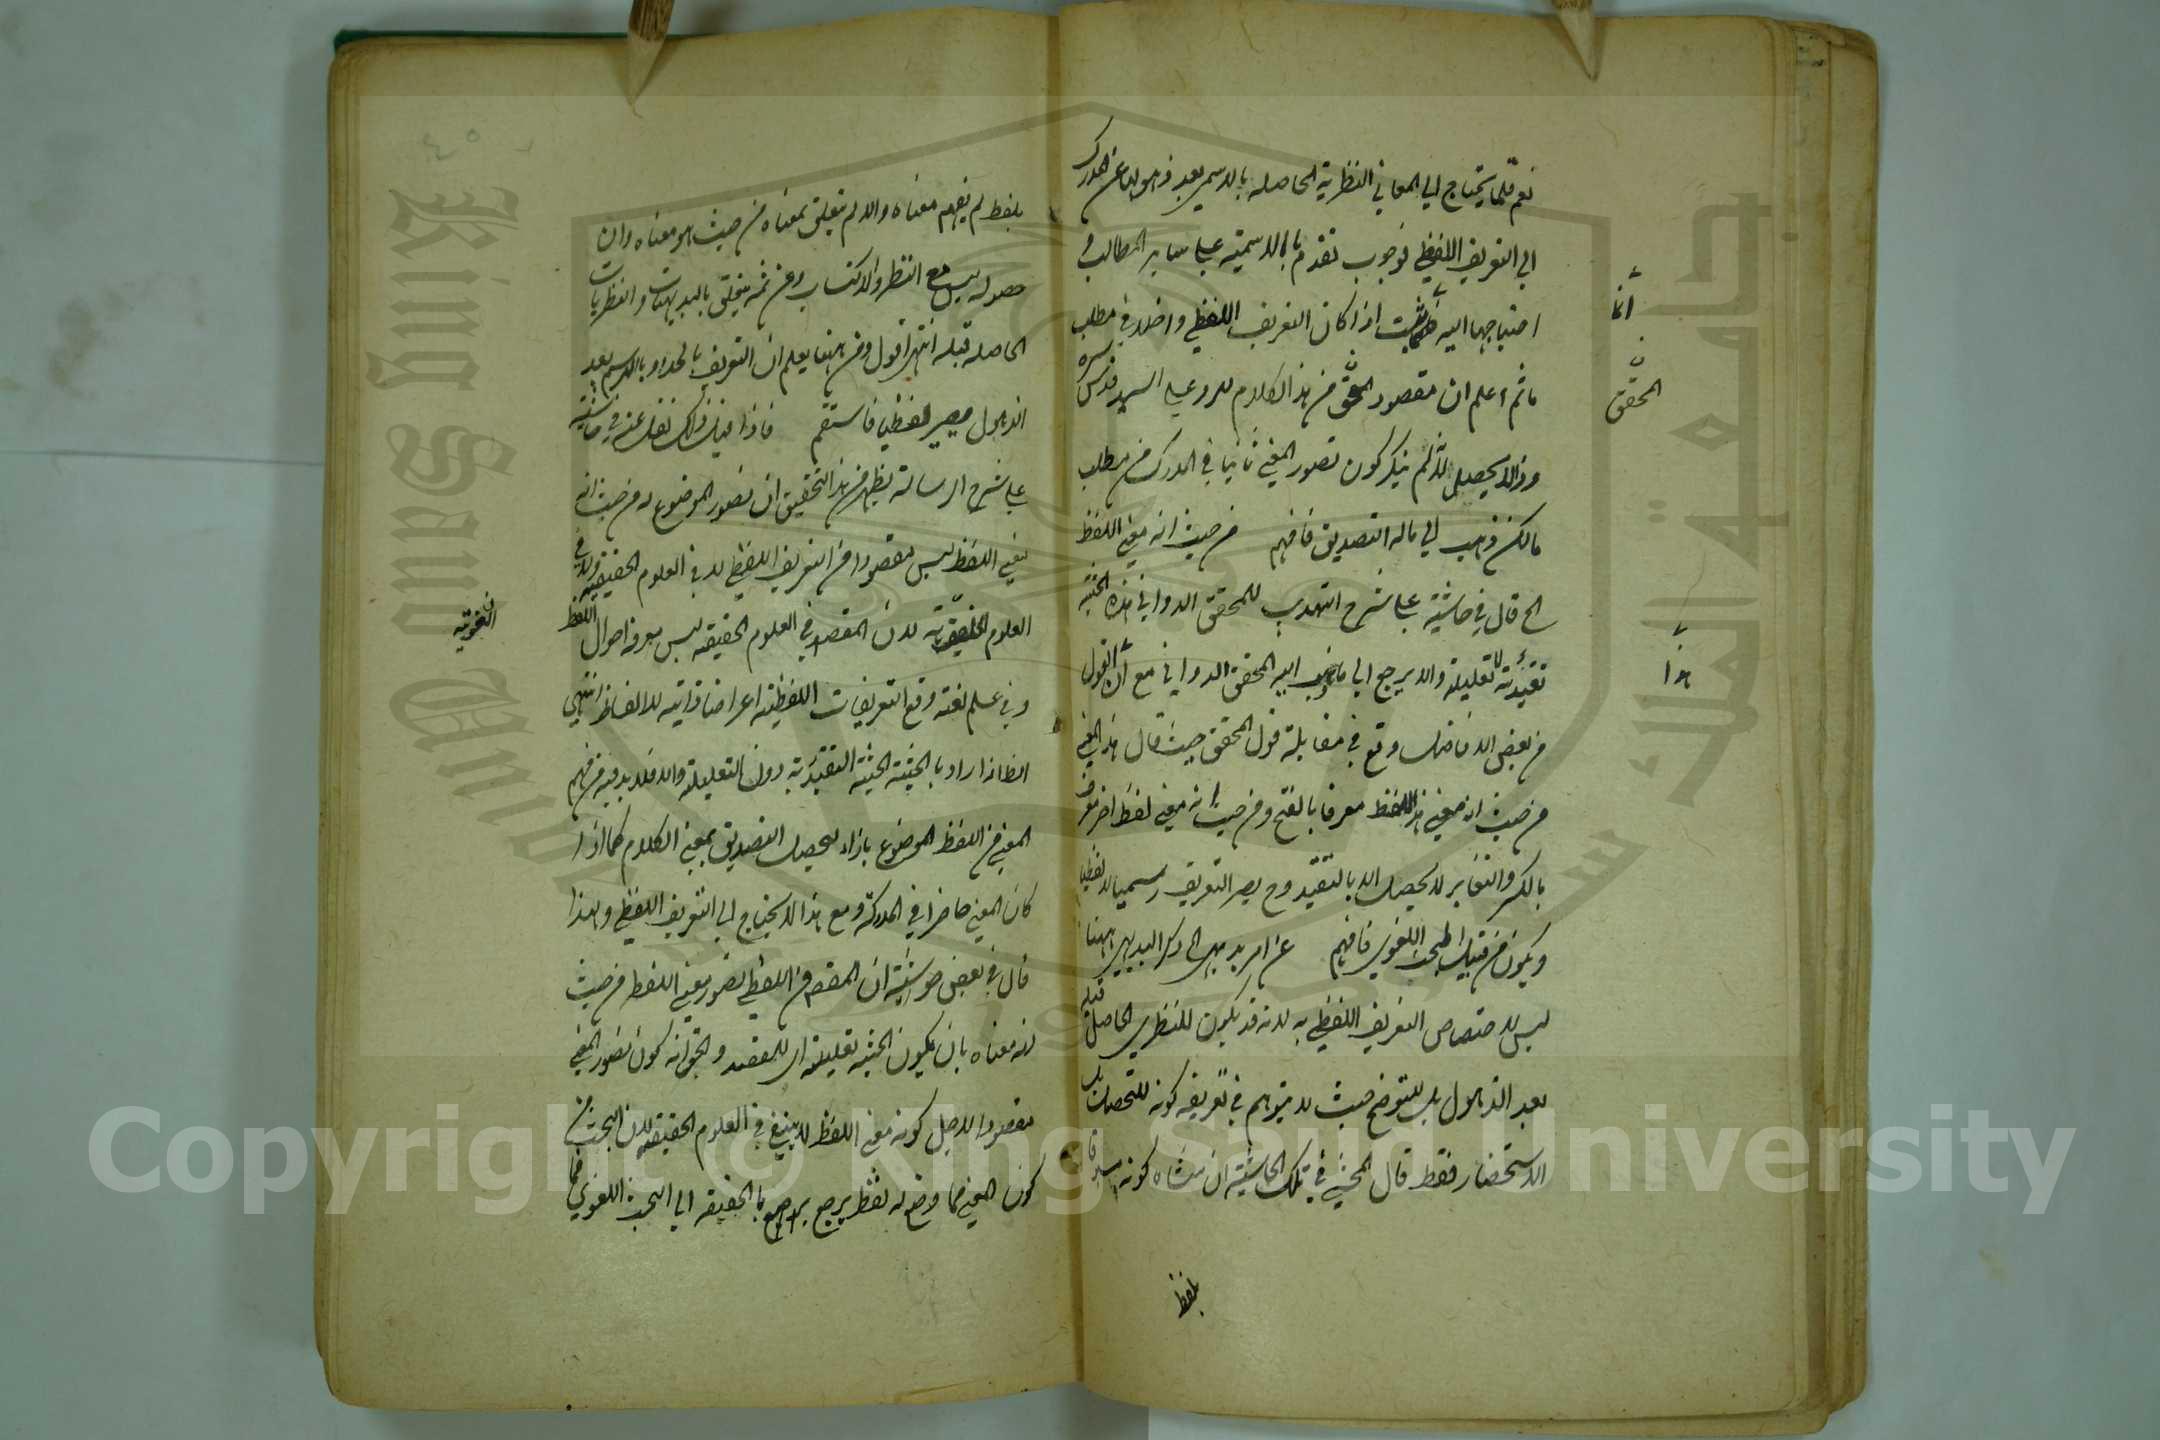 نعم قلما يحتاج الي المعاني النظرية الحاصله بالرسم بعد ذهولها عن المدرك
الي التعريف اللفظي فوجوب تقدم ما الاسمية علي ساير المطالب
احتياجها اليه يثبت اذا كان التعريف اللفظي داخلا في مطلب
ما ثم اعلم ان مقصود المحقق من هذا الكلام الرد علي السيد قدس سره
وذا لا يحصل لانه لم ينكر كون تصور المعني ثانيا في المدرك من مطلب
ما لكن ذهب الي ماله التصديق فافهم من حيث انه معني اللفظ
الخ قال في حاشية علي شرح التهذيب للمحقق الدواني هذه الحيثية
تقييدية لا تعليلية والا يرجع الي ما ذهب اليه المحقق الدواني مع ان القول
من بعض الافاضل وقع في مقابلة قول المحقق حيث قال هذا المعني
من حيث انه معني هذا اللفظ معرفا بالفتح ومن حيث انه معني لفظ اخر معرف
بالكسر والتغاير لا يحصل الا بالتقييد وح يصير التعريف رسميا لا لفظيا
ويكون من قبيل البحث اللغوي فافهم عن امر بديهي الخ ذكر البديهي ههنا
ليس لاختصاص التعريف اللفظي به لانه قد يكون للنظري الحاصل قبله
بعد الذهول بل للتوضيح حيث لا يتوهم في تعريفه كونه للتحصيل بل
الاستحضار فقط قال المحشي في تلك الحاشية ان منشاه كونه
بلفظ
انما
المحقق
هذا
بلفظ لم يفهم معناه والا لم يتعلق بمعناه من حيث هو معناه وان
حصوله ليس مع النظر والاكتساب ومن ثمه يتعلق بالبديهيات والنظريات
الحاصله قبله انتهي اقول ومن ههنا يعلم ان التعريف بالحد او بالرسم بعد
الذهول يصير لفظيا فاستقم فاذا قيل ذلك نقل عنه في حاشية
علي شرح الرسالة يظهر من هذا التحقيق ان تصور الموضوع له من حيث انه
معني اللفظ ليس مقصودا من التعريف اللفظي لا في العلوم الحقيقيه ولا في
العلوم اللغوية لان المقصود في العلوم الحقيقه ليس معرفة احوال اللفظ
وفي علم لغته وقع التعريفات اللفظية اعراضا ذاتيه للالفاظ انتهي
الظ انه اراد بالحيثية الحيثية التقييدية دون التعليلة والا فلا بد فيه من فهم
المعني من اللفظ الموضوع بازاء تحصيل التصديق بمعني الكلام كما اذا
كان المعني حاضرا في المدركة ومع هذا لا يحتاج الي التعريف اللفظي ولهذا
قال في بعض حواشيه ان المقصود من اللفظي تصور معني اللفظ من حيث
انه معناه بان يكون الحيثيه تعليلة اي للمقصد والحق انه كون تصور المعني
مقصودا لاجل كونه معني اللفظ لا ينبغي في العلوم الحقيقيه لان البحث من
كون المعني مما وضع له لفظ يرجع بالحقيقه الي البحث اللغوي
اللغوية
٤٥
Copyright © King Saud University
King Saud University